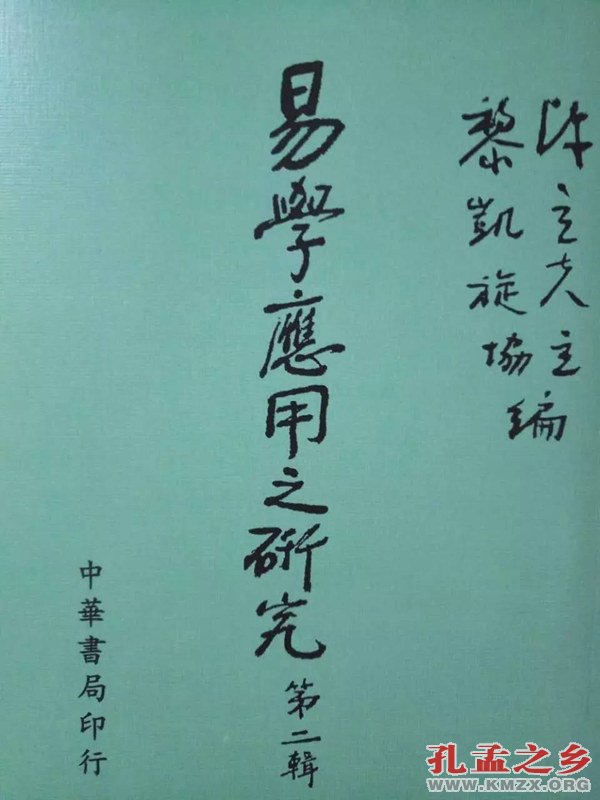 陳立夫主編
黎凱旋協編
易學應用之研究
第二輯
中華書局印行
孔孟之乡
WWW.KMZX.ORG